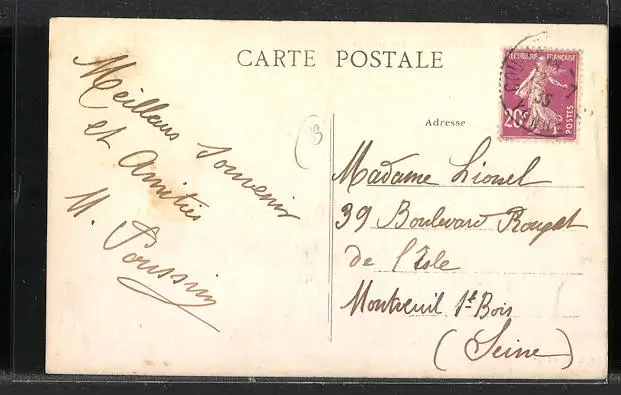 CARTE POSTALE
Meilleurs Souvenir
et Amitiés
M. Poussin
Adresse
REPUBLIQUE FRANÇAISE
20c
POSTES
Madame Lionel
39 Boulevard Rouget
de l'Isle
Montreuil s/s Bois
(Seine)